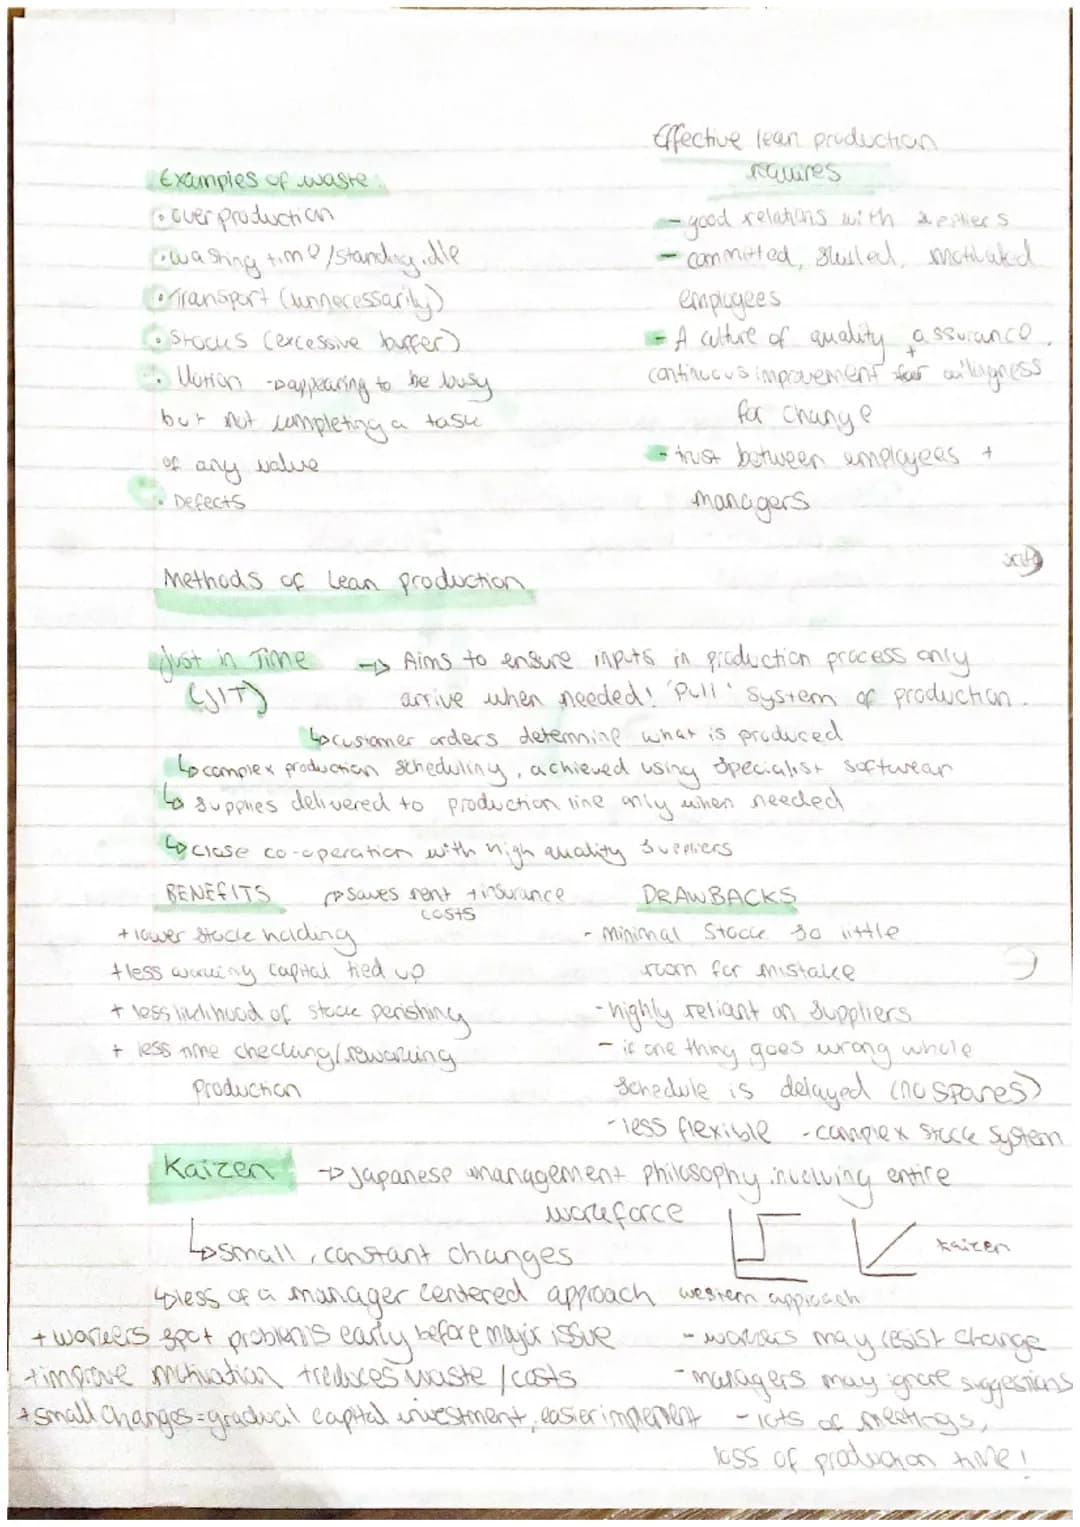 Examples of waste:
• over production
• wasting time/standing idle
• Transport (unnecessarily)
• Stocks (excessive buffer)
• Motion → appearing to be busy
but not completing a task
of any value
• Defects
Effective lean production
requires
- good relations with suppliers
- committed, skilled, motivated
employees
- A culture of quality assurance.
+
continuous improvement for willingness
for change
- trust between employees +
managers
Methods of Lean production
Just in Time → Aims to ensure inputs in production process only
(JIT) arrive when needed! 'Pull' system of production.
↳ customer orders determine what is produced
↳ complex production scheduling, achieved using specialist softwear
↳ supplies delivered to production line only when needed
↳ close co-operation with high quality suppliers
BENEFITS → saves rent + insurance
costs
+ lower stock holding
+ less working capital tied up
+ less likelihood of stock perishing
+ less time checking/reworking
production
DRAWBACKS
- minimal stock so little
room for mistake
- highly reliant on suppliers
- if one thing goes wrong whole
schedule is delayed (no spares)
- less flexible - complex stock system
Kaizen → Japanese management philosophy involving entire
workforce
↳ small, constant changes
kaizen
↳ less of a manager centered approach western approach
+ workers spot problems early before major issue
+ improve motivation + reduces waste / costs
+ small changes = gradual capital investment, easier implement
- workers may resist change
- managers may ignore suggestions
- lots of meetings,
loss of production time!